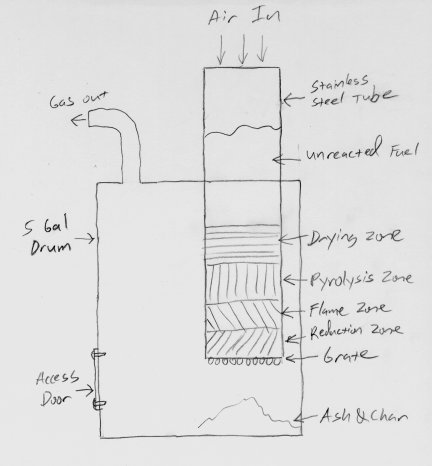 Air In
Stainless
Steel Tube
Gas out
unreacted Fuel
5 Gal
Drum
Drying Zone
Pyrolysis Zone
Flame Zone
Reduction Zone
Grate
Access
Door
Ash & Char